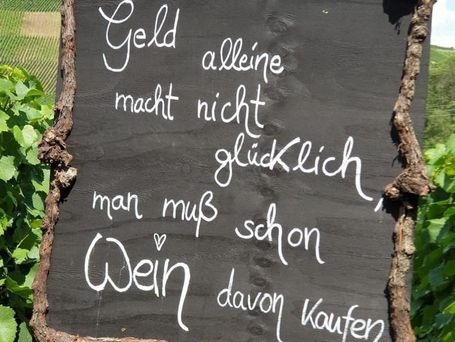 Geld alleine
macht nicht
glücklich,
man muß schon
Wein davon kaufen